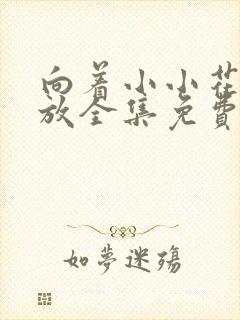 向着小小花
放全集免费
如梦迷殇